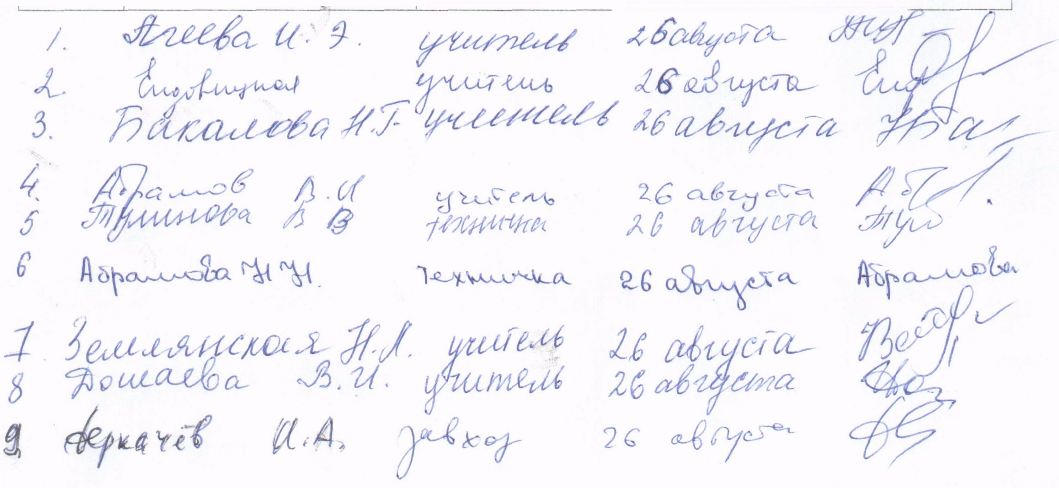 1. Агеева И. Э. учитель 26 августа
2. Ендовицкая учитель 26 августа Енд
3. Бакалова Н Г- учитель 26 августа НБак
4. Абрамов В. И учитель 26 августа
5 В В техничка 26 августа
6 Абрамова Н Н. техничка 26 августа Абрамова
7 Землянская Н. Л. учитель 26 августа
8 В. И. учитель 26 августа
9 Деркачёв И. А. завхоз 26 августа